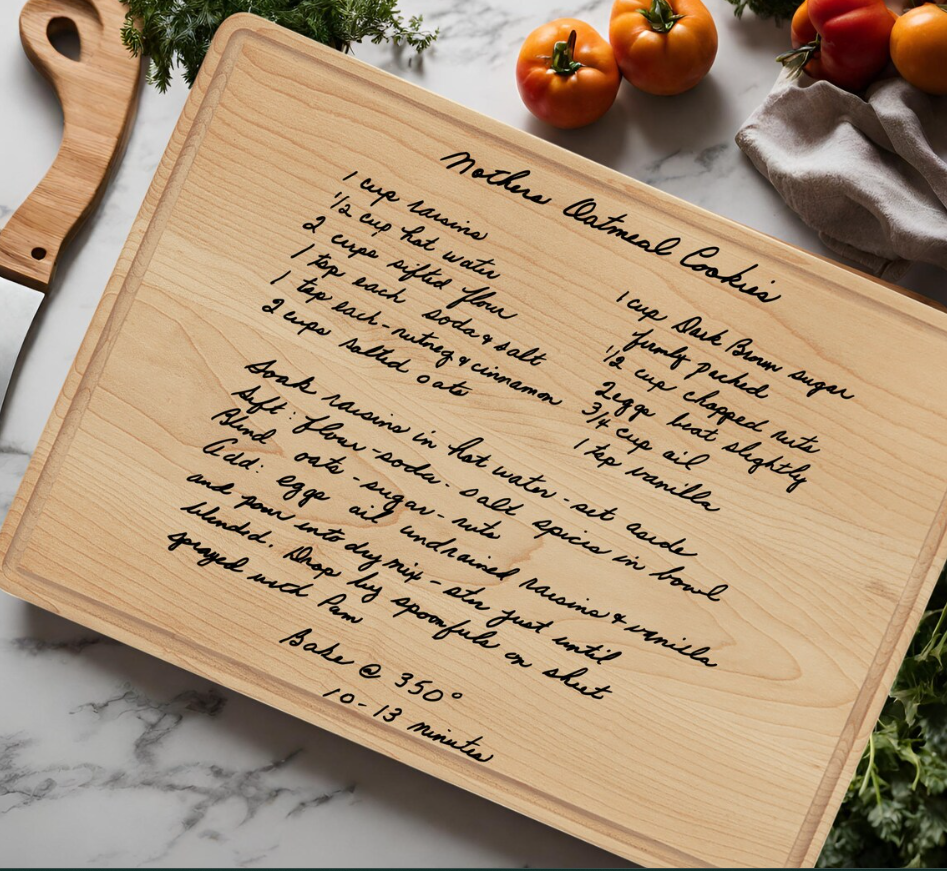 Mothers Oatmeal Cookies
1 cup raisins
1/2 cup hot water
2 cups sifted flour
1 tsp each soda & salt
1 tsp each - nutmeg & cinnamon
2 cups salted oats
1 cup Dark Brown sugar
firmly packed
1/2 cup chopped nuts
2 eggs beat slightly
3/4 cup oil
1 tsp vanilla
Soak raisins in hot water - set aside
Sift: flour - soda - salt spices in bowl
Blend oats - sugar - nuts
Add: eggs oil undrained raisins & vanilla
and pour into dry mix - stir just until
blended. Drop by spoonfuls on sheet
sprayed with Pam
Bake @ 350°
10-13 minutes